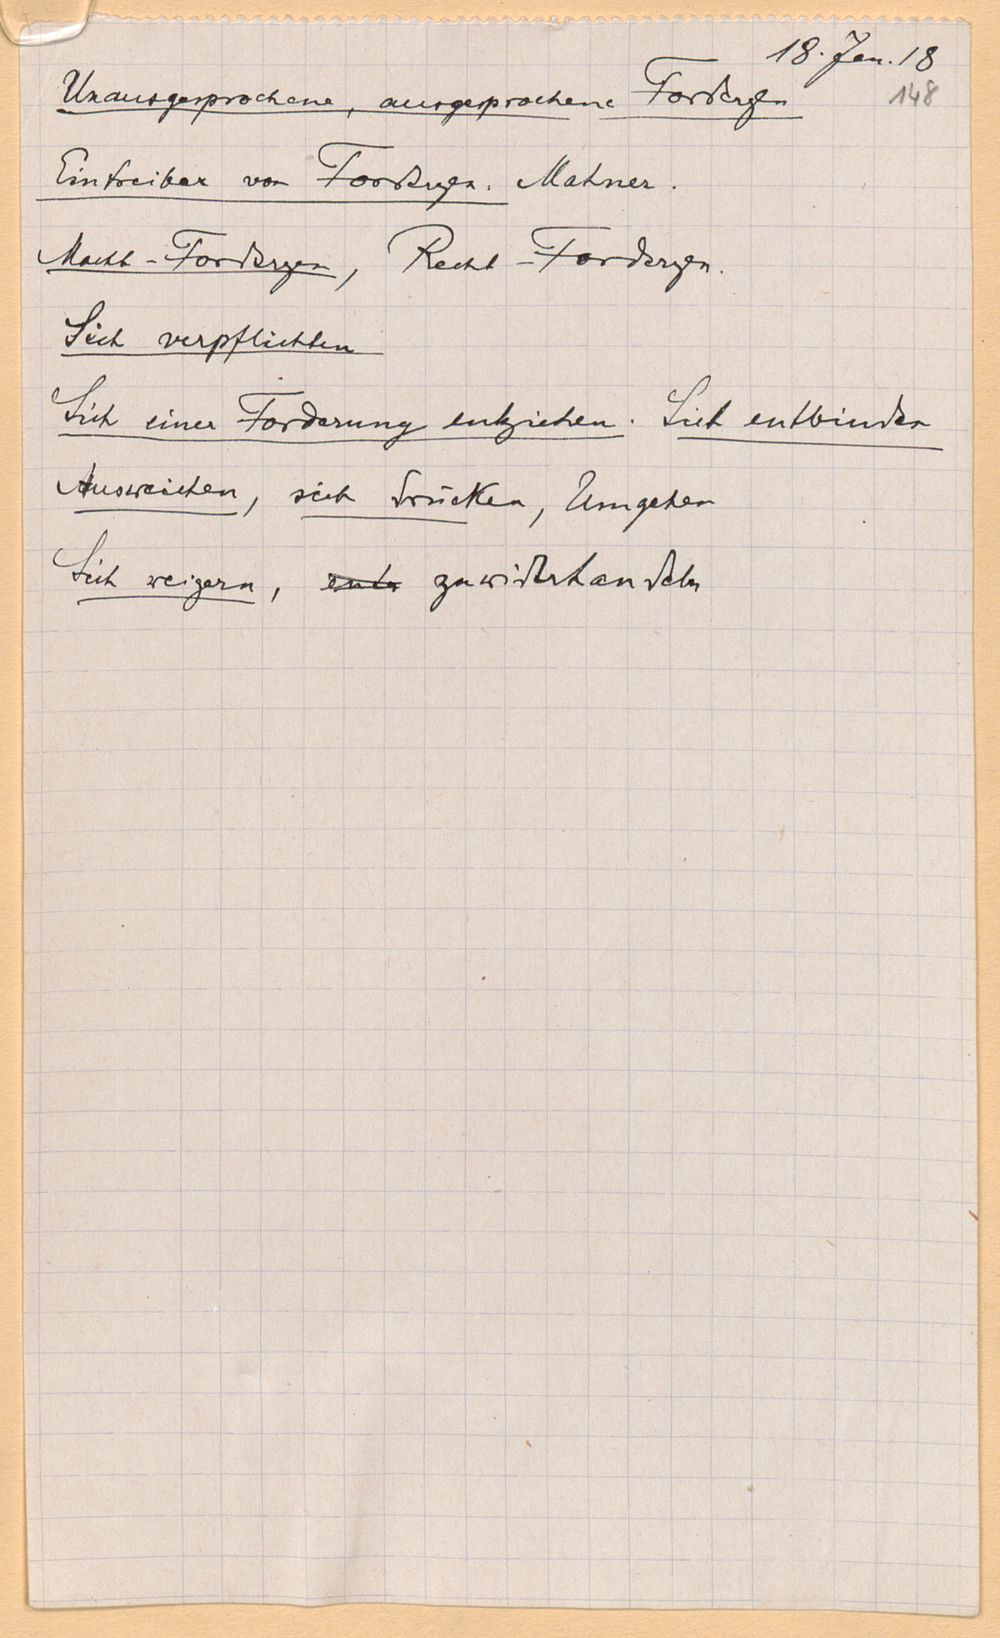 18. Jan. 18
148
Unausgesprochene, ausgesprochene Fordergen
Eintreiber von Fordergen. Mahner.
Macht-Fordergen, Recht-Fordergen.
Sich verpflichten
Sich einer Forderung entziehen. Sich entbinden
Ausweichen, sich drücken, Umgehen
Sich weigern, zuwiderhandeln